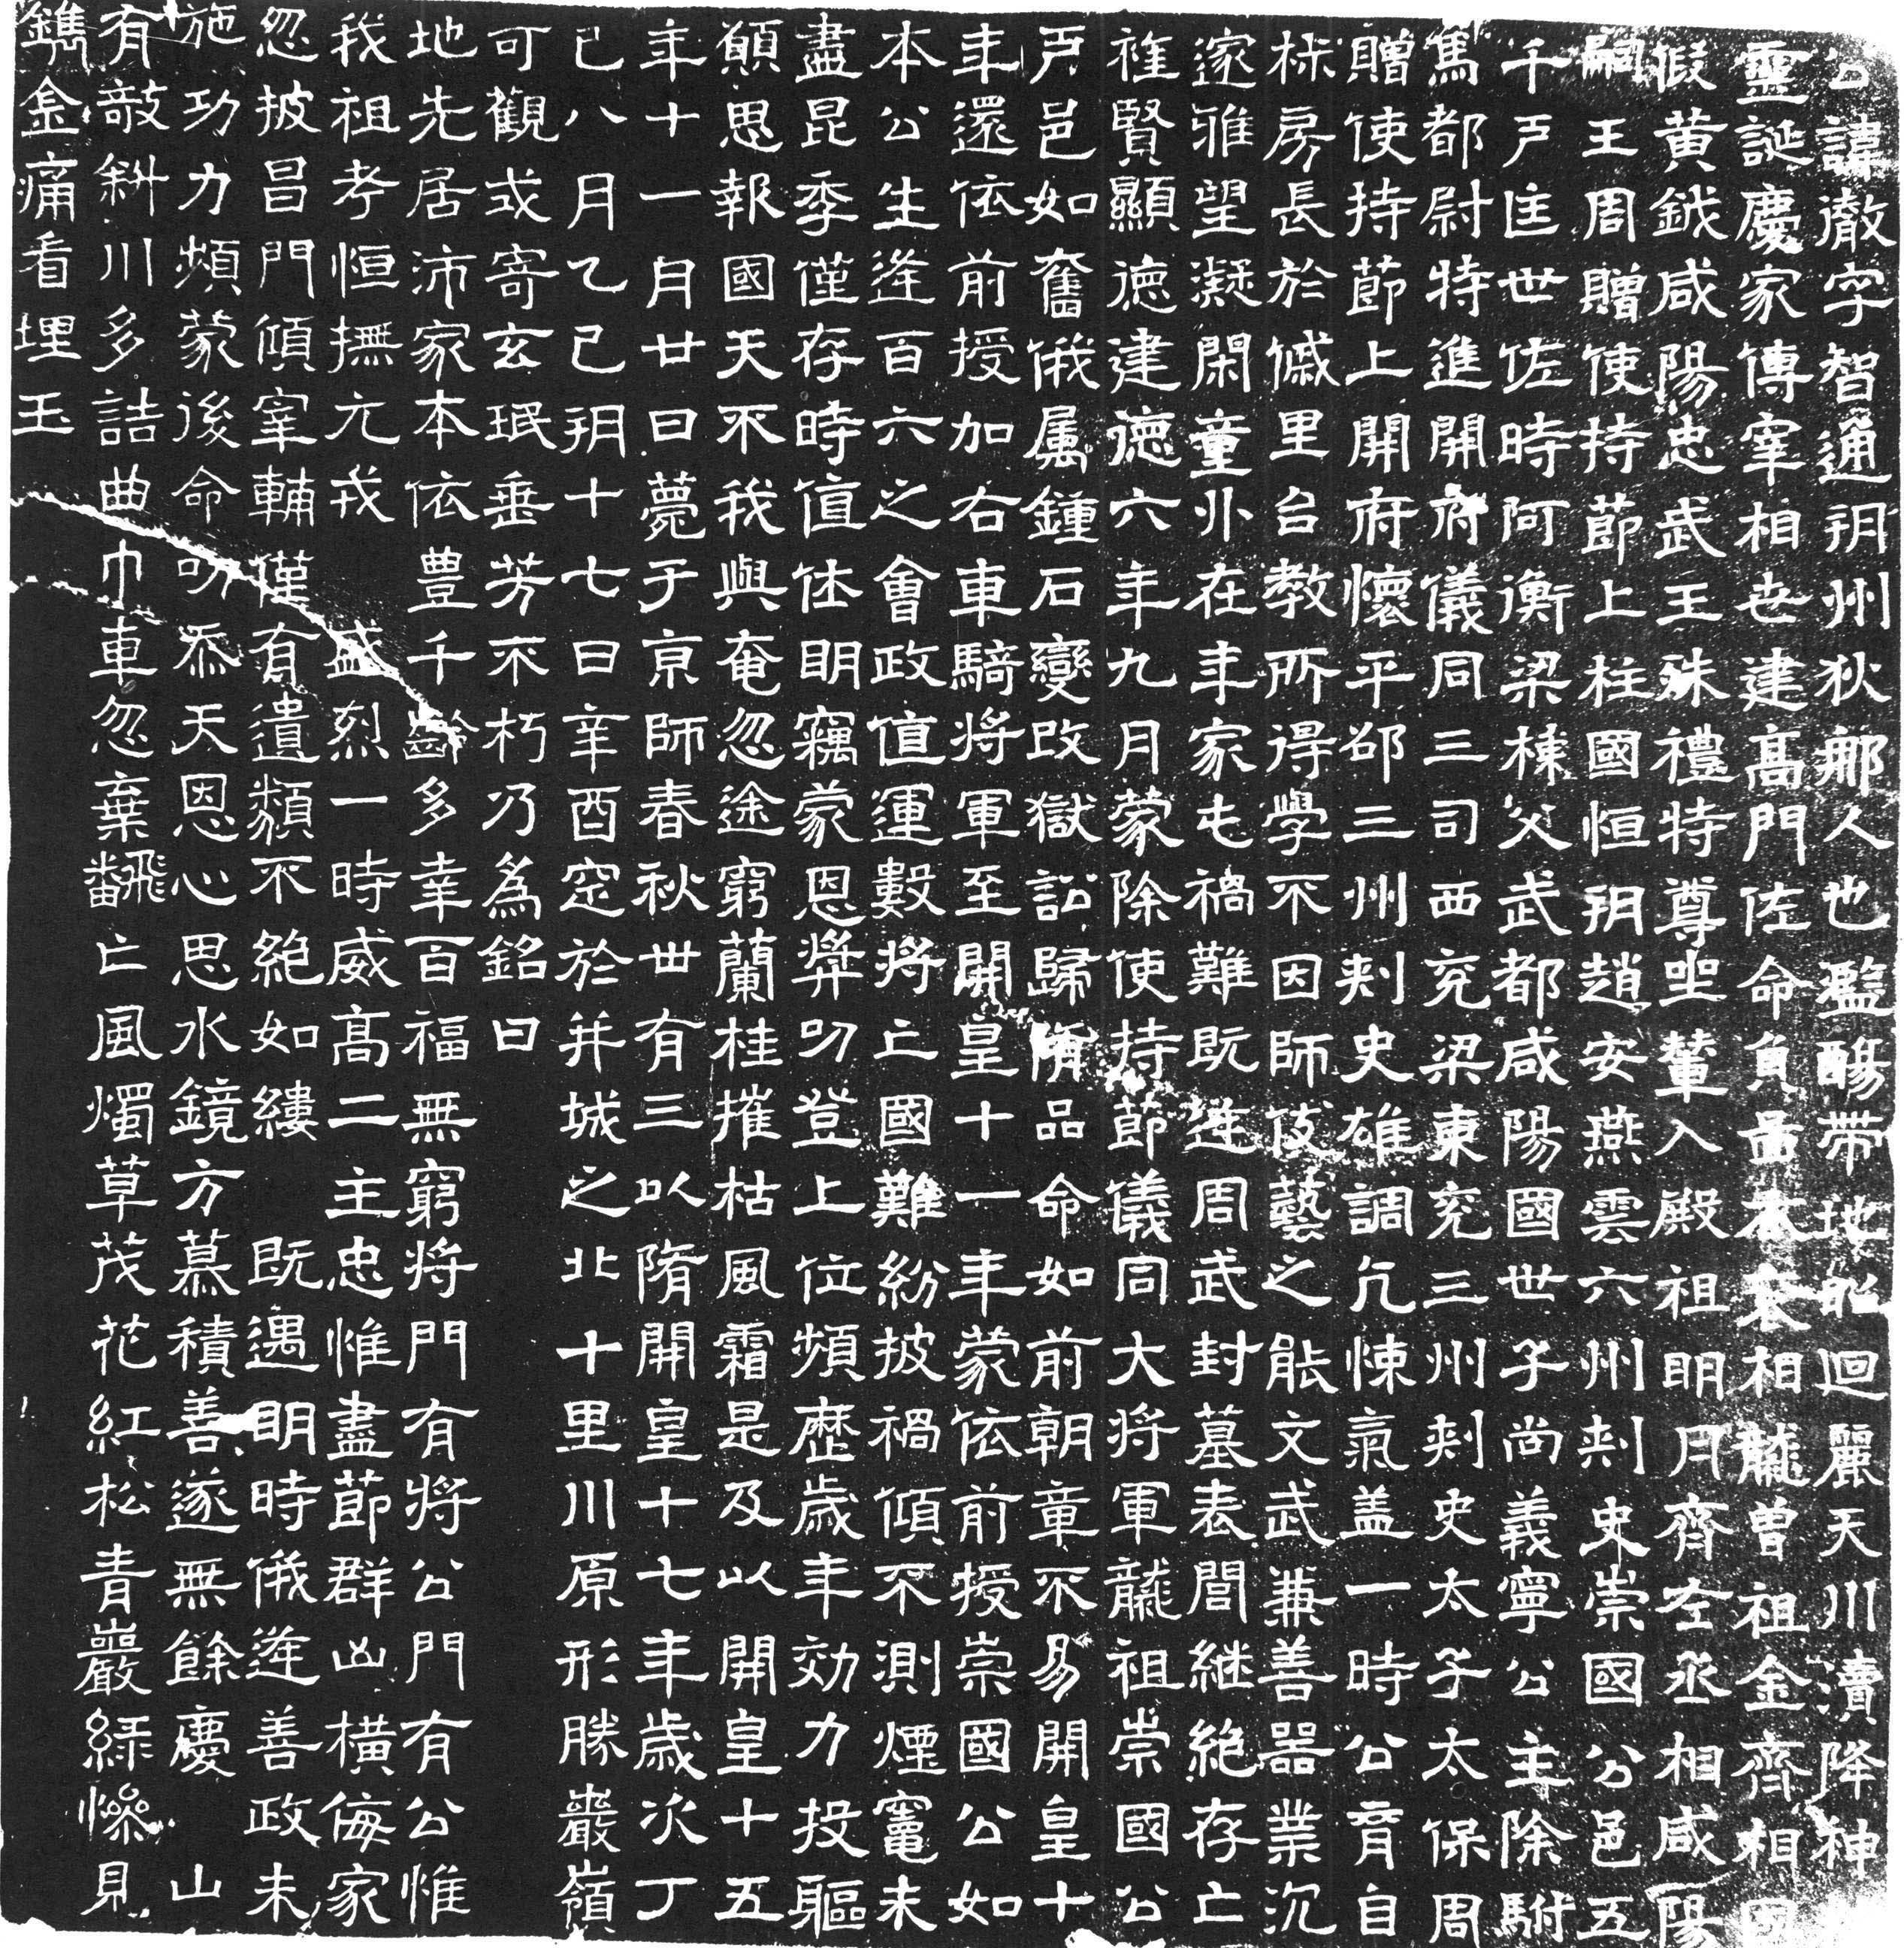 公諱徹字智通玥州狄那人也盬醔带地昭迴麗天川瀆降神
靈誕慶家傳宰相世建髙門佐命負啚袞衣相龍曽祖金齊相國
假黄鉞咸陽忠武王殊禮特尊坐輦入殿祖明月齊左丞相咸陽
嗣王周贈使持莭上柱國恒玥趙安燕雲六州刾史崇國公邑五
千戸匡世佐時阿衡梁棟父武都咸陽國世子尚義寧公主除駙
馬都尉特進開府儀同三司西兖梁東兖三州刾史太子太保周
贈使持莭上開府懷平邵三州刾史雄調亢悚氣盖一時公育自
椒房長於戚里台教所得學不因師伎藝之能文武兼善器業沉
邃雅望凝閑童丱在年家屯禍難既逢周武封墓表閭継絶存亡
禐賢顯德建德六年九月蒙除使持莭儀同大将軍龍祖崇國公
戸邑如舊俄属鍾石變改獄訟歸隋品命如前朝章不易開皇十
年還依前授加右車騎将軍至開皇十一年蒙依前授崇國公如
本公生逢百六之會政值運數将亡國難紛披禍傾不測煙竈未
盡昆季僅存時值休明竊蒙恩奨叨登上位頻歴歳年効力投驅
願思報國天不我與奄忽途窮蘭桂摧枯風霜是及以開皇十五
年十一月廿日薨于京師春秋卅有三以隋開皇十七年歳次丁
巳八月乙巳玥十七日辛酉窆於并城之北十里川原形勝巖嶺
可觀或寄玄珉垂芳不朽乃為銘曰
地先居沛家本依豊千齡多幸百福無窮将門有将公門有公惟
我祖考恒撫元戎盛烈一時威髙二主忠惟盡莭群凶橫侮家
忽披昌門傾宰輔僅有遺類不絶如縷既遇明時俄逢善政未
施功力頻蒙後命叨忝天恩心思水鏡方慕積善遂無餘慶山
有敧斜川多詰曲巾車忽棄飜亡風燭草茂花紅松青巖緑慘見
鐫金痛看埋玉